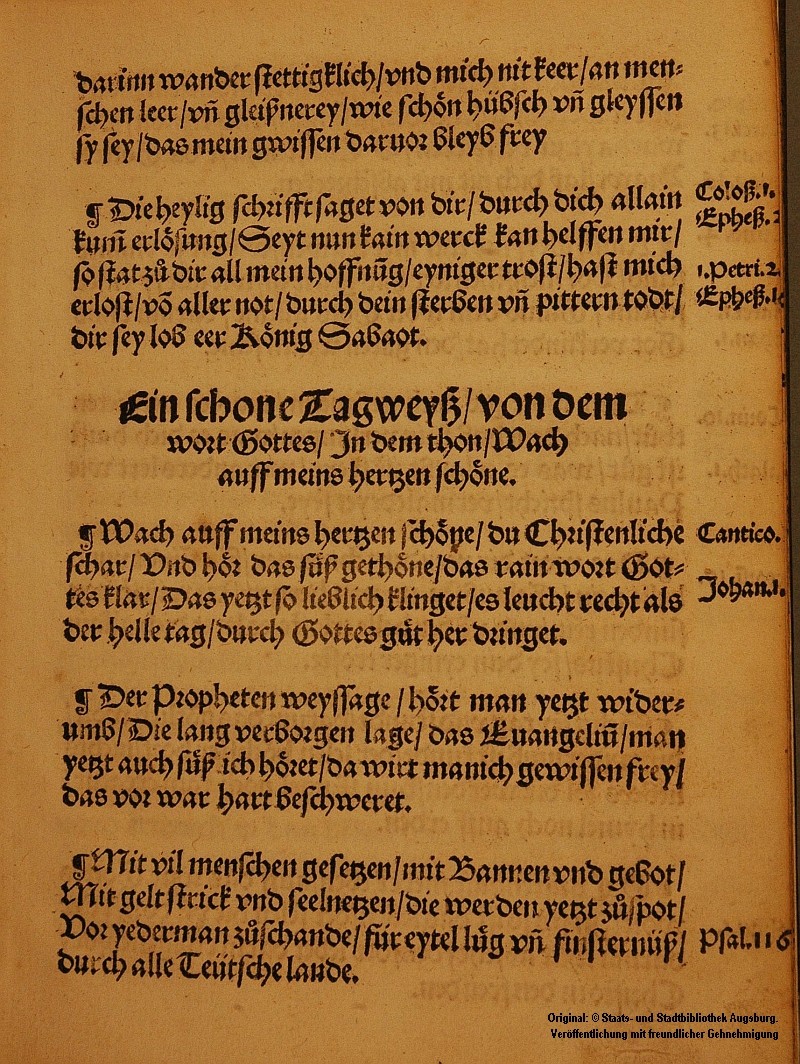 darinn wander stettigklich/vnd mich nit keer/an men⸗
schen leer/vñ gleißnerey/wie schön hübsch vñ gleyssen
sy sey/das mein gwissen daruor bleyb frey
¶ Die heylig schrifft saget von dir/durch dich allain
kum̃ erlösung/Seyt nun kain werck kan helffen mir/
so stat zů dir all mein hoffnũg/eyniger trost/hast mich
erlost/võ aller not/durch dein sterben vñ pittern todt/
dir sey lob eer König Sabaot.
Coloß.1.
Epheß.2
1.Petri.2.
Epheß.1.
Ein schone Tagweyß/von dem
wort Gottes/ In dem thon/Wach
auff meins hertzen schöne.
¶ Wach auff meins hertzen schöne/du Christenliche
schar/ Vnd hör das süß gethöne/das rain wort Got⸗
tes klar/Das yetzt so lieblich klinget/es leucht recht als
der helle tag/durch Gottes güt her dringet.
Cantico.
Johan.1.
¶ Der Propheten weyssage/hört man yetzt wider⸗
umb/Die lang verborgen lage/das Euangeliũ/man
yetzt auch süß ich höret/da wirt manich gewissen frey/
das vor war hart beschweret.
¶ Mit vil menschen gesetzen/mit Bannen vnd gebot/
Mit gelt strick vnd seelnetzen/die werden yetzt zů spot/
Vor yederman zů schande/für eytel lüg vñ finsternüß/
durch alle Teütsche lande.
Psal.116
Original: © Staats- und Stadtbibliothek Augsburg.
Veröffentlichung mit freundlicher Gehnehmigung